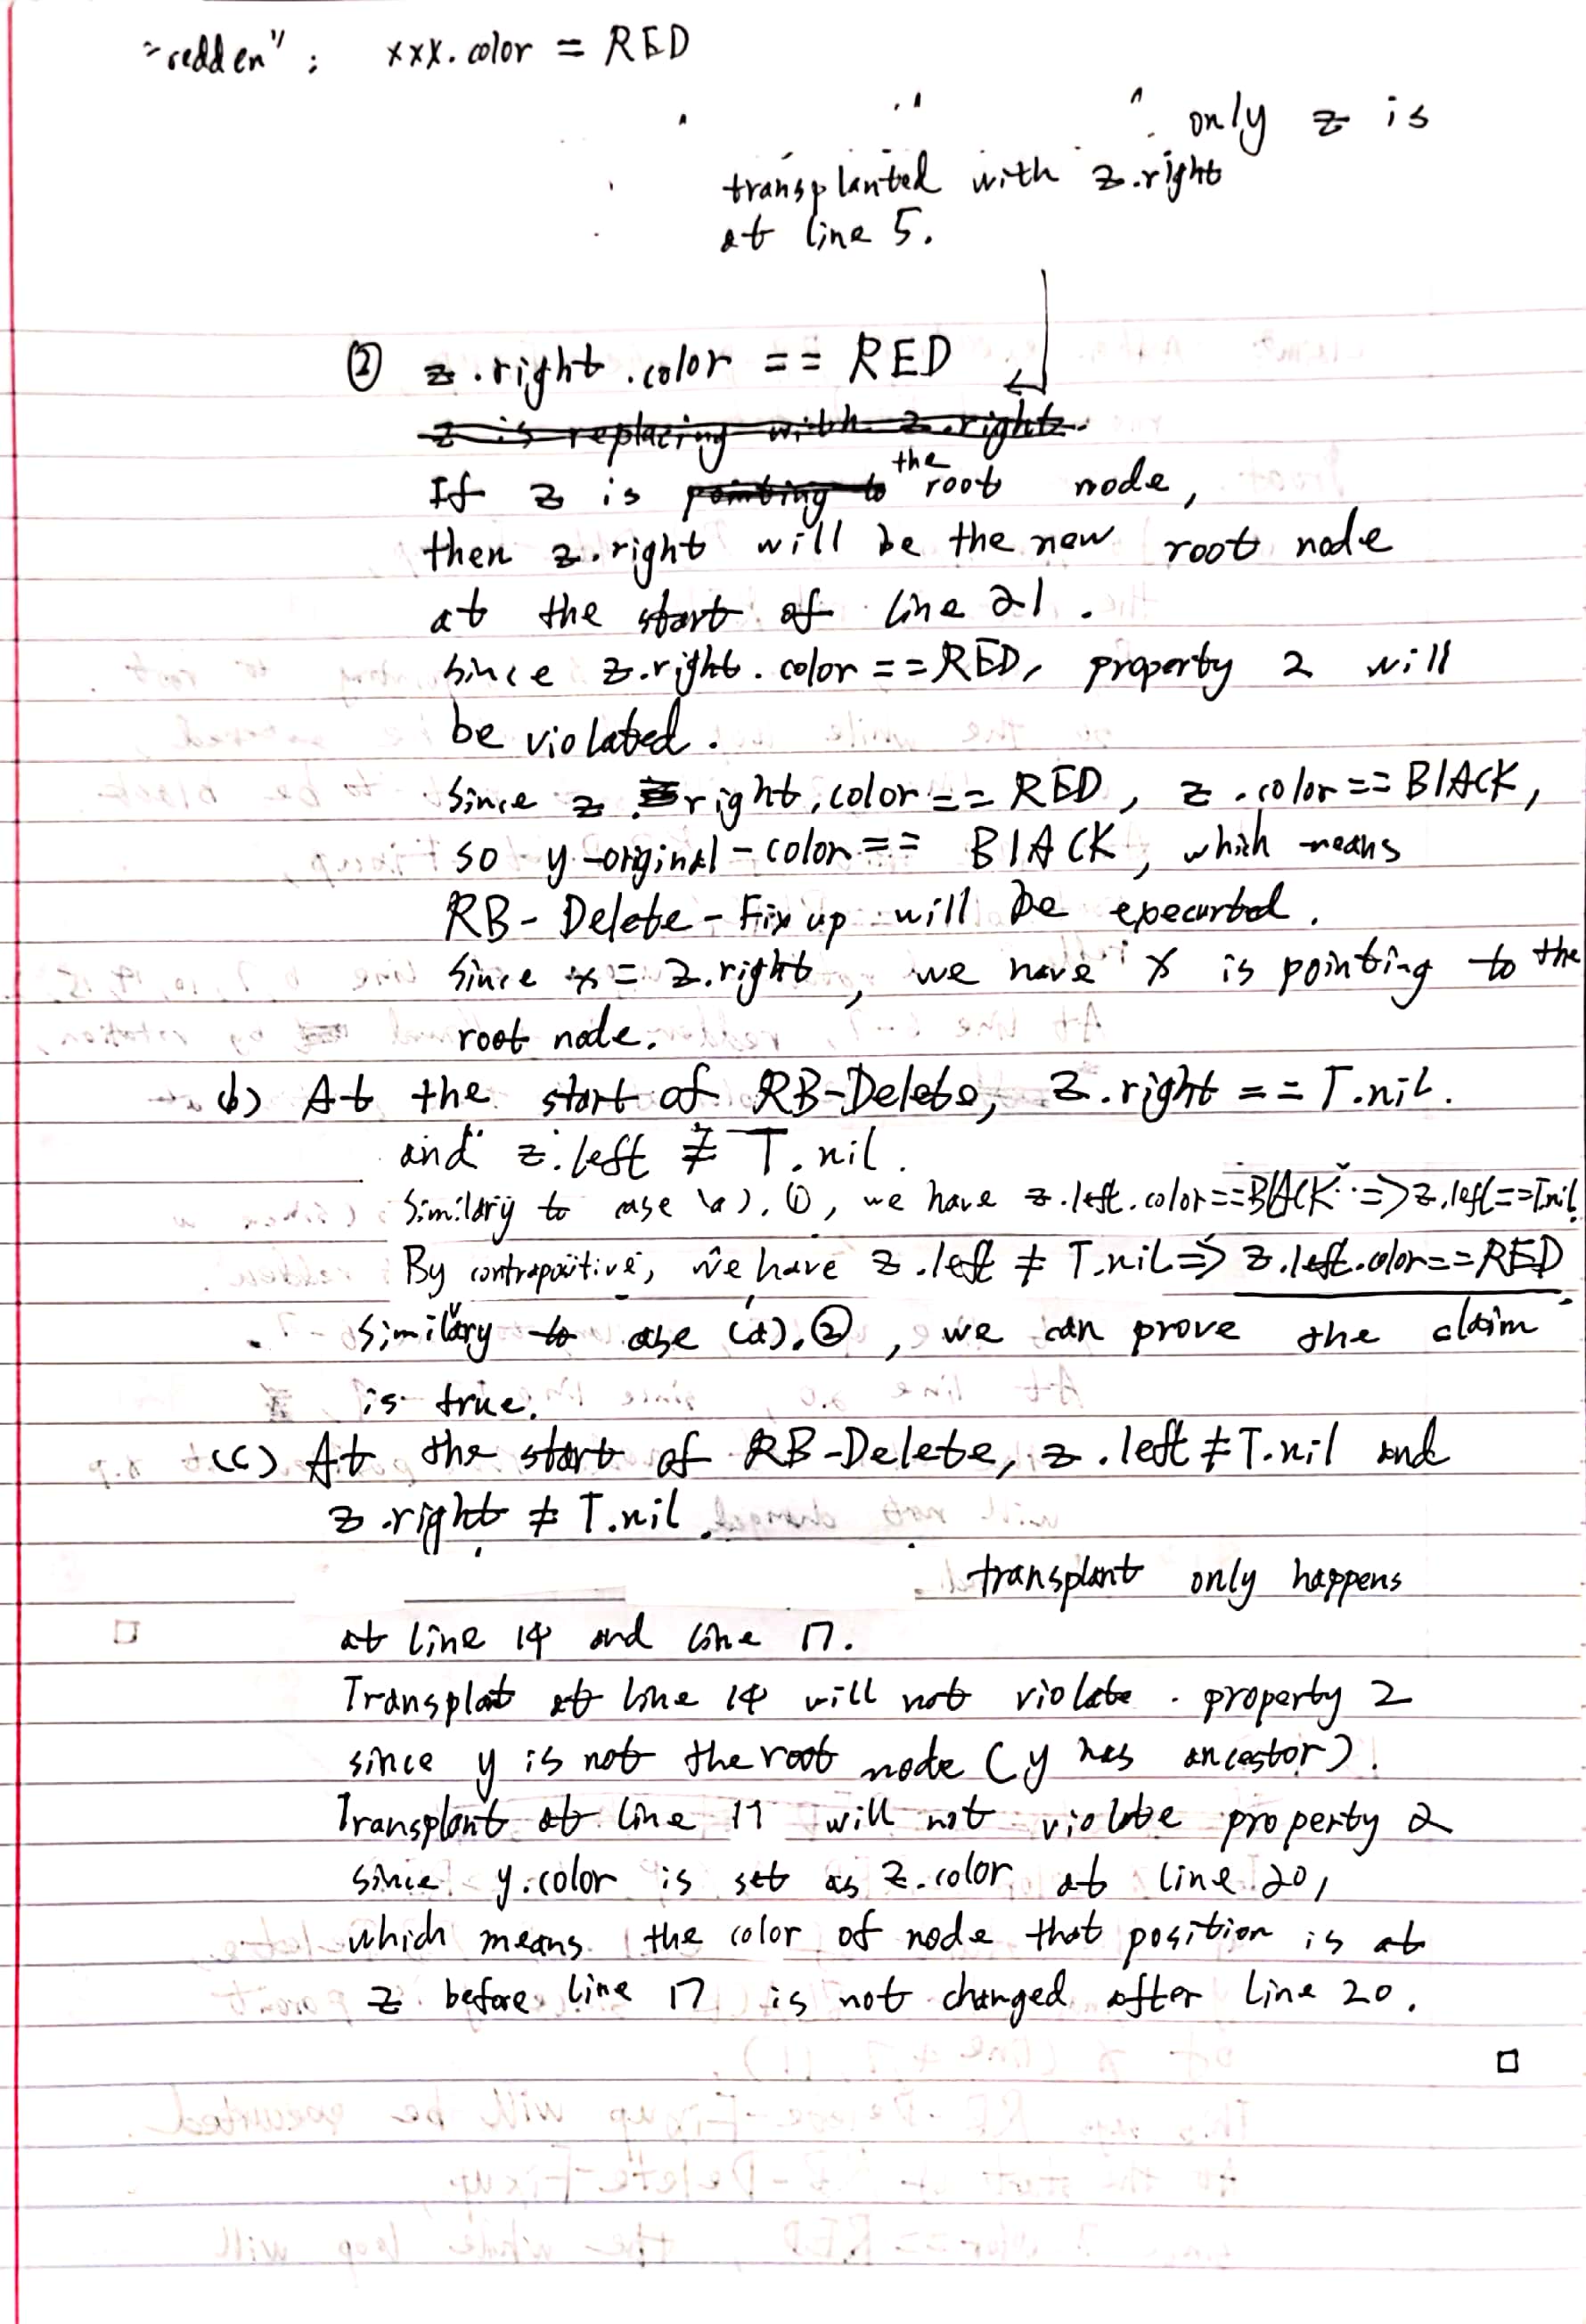 "redden": xxx.color = RED
only z is
transplanted with z.right
at line 5.
② z.right.color == RED
z is replacing with z.right.
the
If z is pointing to root node,
then z.right will be the new root node
at the start of line 21.
Since z.right.color == RED, property 2 will
be violated.
Since z.right.color == RED, z.color == BlACK,
so y-original-color == BlACK, which means
RB-Delete-Fixup will be execurted.
Since x = z.right, we have x is pointing to the
root node.
b) At the start of RB-Delete, z.right == T.nil.
and z.left ≠ T.nil.
Similary to case (a).①, we have z.left.color==BlACK => z.left==T.nil.
By contrapositive, we have z.left ≠ T.nil => z.left.color==RED
Similary to case (a).②, we can prove the claim
is true.
(c) At the start of RB-Delete, z.left ≠ T.nil and
z.right ≠ T.nil.
transplant only happens
at line 14 and line 17.
Transplat at line 14 will not violate property 2
since y is not the root node (y has ancestor).
Transplant at line 17 will not violate property 2
since y.color is set as z.color at line 20,
which means the color of node that position is at
z before line 17 is not changed after line 20.
□